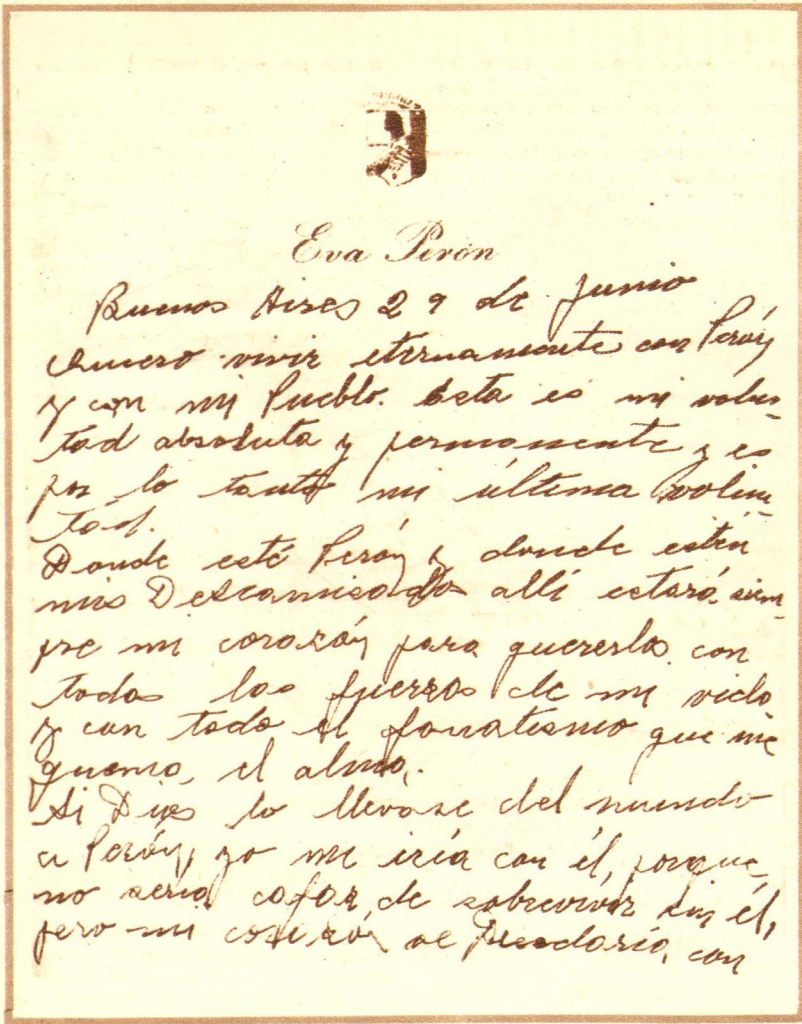 Eva Perón
Buenos Aires 29 de Junio
Quiero vivir eternamente con Perón
y con mi Pueblo. Esta es mi volun-
tad absoluta y permanente y es
por lo tanto mi última volun-
tad.
Donde esté Perón y donde estén
mis Descamisados allí estará siem-
pre mi corazón para quererlos con
todas las fuerzas de mi vida
y con todo el fanatismo que me
quema el alma.
Si Dios lo llevase del mundo
a Perón, yo me iría con él, porque
no sería capaz de sobrevivir sin él,
pero mi corazón se quedaría, con